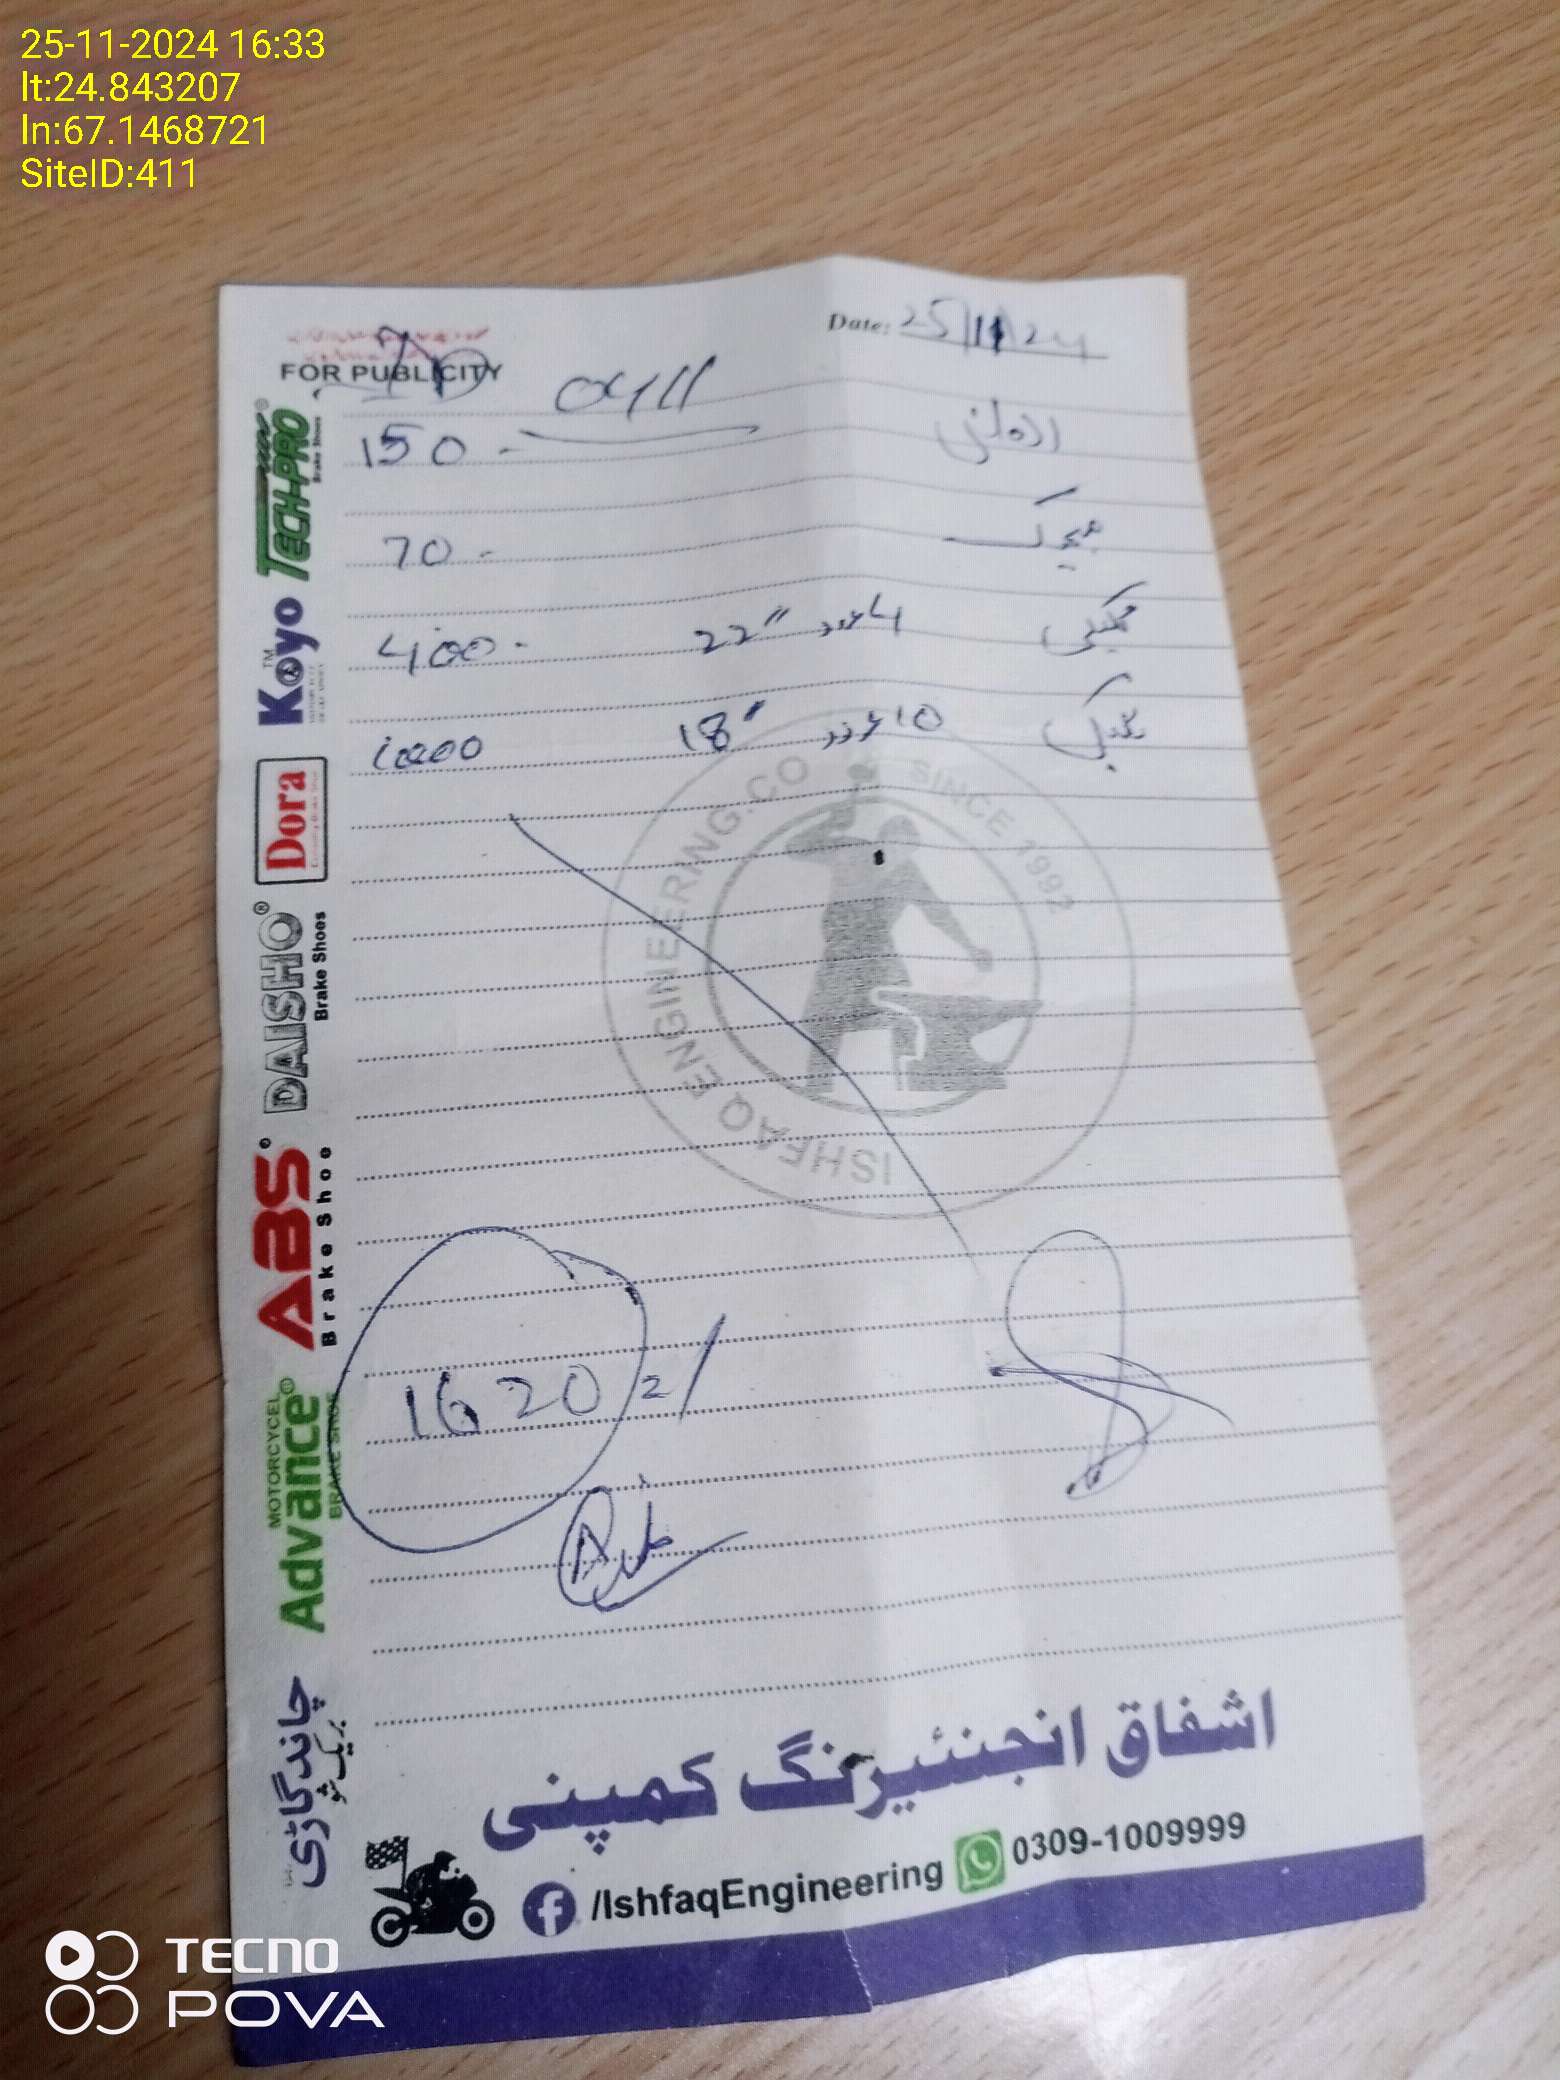 25-11-2024 16:33
lt:24.843207
ln:67.1468721
SiteID:411
Date: 25/11/24
FOR PUBLICITY
ID 0411
150 -
70 -
400 - 22" 4 عدد
1000 18" 10 عدد
1620/
TECH-PRO®
Brake Shoes
Koyo™
Dora
DAISHO®
Brake Shoes
ABS
Brake Shoe
MOTORCYCEL
Advance
BRAKE SHOE
چاند گاڑی
بریک شو
ISHFAQ ENGINEERING.CO
SINCE 1992
اشفاق انجنئیرنگ کمپنی
/IshfaqEngineering 0309-1009999
TECNO
POVA